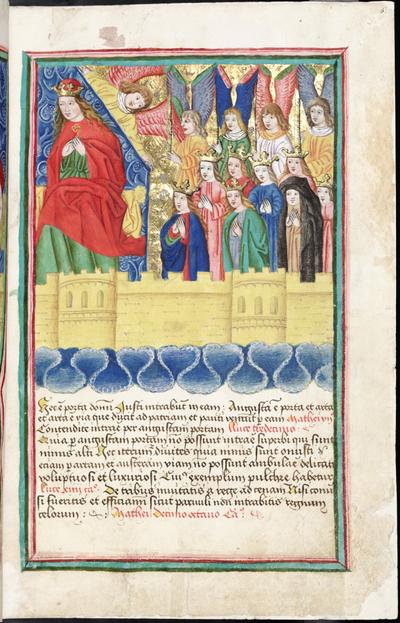 Hec ē porta domi Justi intrabūt in eam : Angusta ē porta et arta
et arta ē via que ducit ad patriam et pauci veniūt p eam Mathei vij
Contendite intrare per angustam portam Luce tredecimo :
Quia p angustam portam nō possunt intrare superbi qui sunt
nimis alti Nec iterum divites quia nimis sunt onusti
etiam p artam et austeram viam no possunt ambulare delicati
voluptuosi et luxuriosi Cuiꝰ exemplum pulchre habetur
Luce xiiij ca° De tribus invitatis a rege ad cenam Nisi conversi
si fueritis et efficiamini sicut parvuli non intrabitis regnum
celorum : Mathei Decimo octavo Ca°